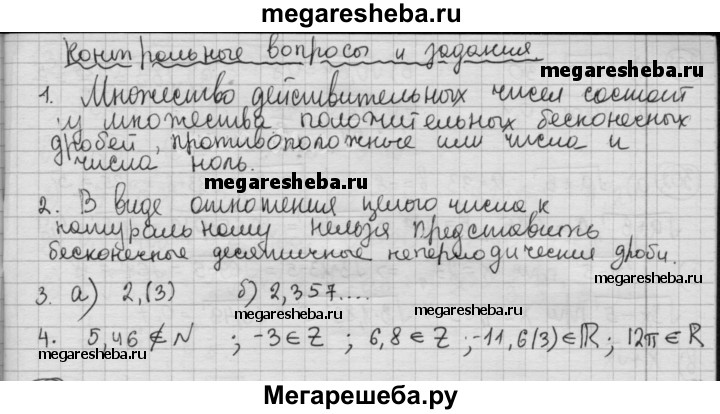 megaresheba.ru
Контрольные вопросы и задания
megaresheba.ru
1. Множество действительных чисел состоит
из множества положительных бесконечных
дробей, противоположные или числа и
числа ноль.
megaresheba.ru
2. В виде отношения целого числа к
натуральному нельзя представить
бесконечные десятичные непериодически дроби.
megaresheba.ru
3. а) 2,(3) б) 2,357....
megaresheba.ru
megaresheba.ru
4. 5,46 ∉ N ; -3 ∈ Z ; 6,8 ∈ Z ; -11,6(3) ∈ R ; 12π ∈ R
megaresheba.ru
megaresheba.ru
Мегарешеба.ру